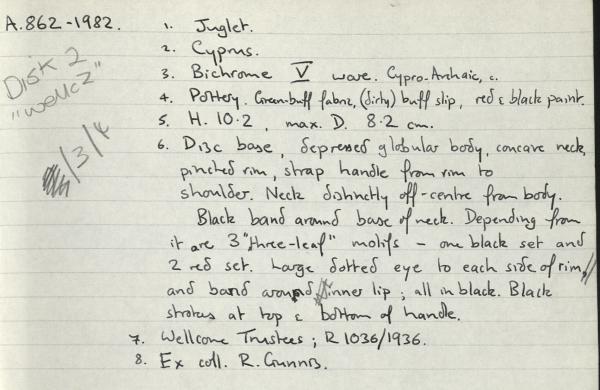 A.862-1982.
1. Juglet.
2. Cyprus.
3. Bichrome V ware. Cypro-Archaic, c.
4. Pottery. Green-buff fabric, (dirty) buff slip, red & black paint.
5. H. 10.2, max. D. 8.2 cm.
6. Disc base, depressed globular body, concave neck,
pinched rim, strap handle from rim to
shoulder. Neck distinctly off-centre from body.
Black band around base of neck. Depending from
it are 3 "three-leaf" motifs – one black set and
2 red set. Large dotted eye to each side of rim,
and band around inner lip; all in black. Black
strokes at top & bottom of handle.
7. Wellcome Trustees; R1036/1936.
8. Ex coll. R. Gunnis.
Disk 2
"wellc2"
/3/4